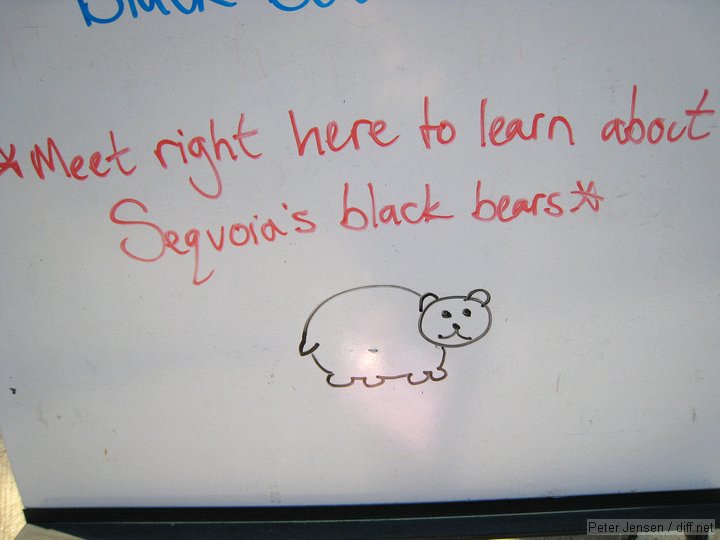 *Meet right here to learn about
Sequoia's black bears*
Peter Jensen / diff.net